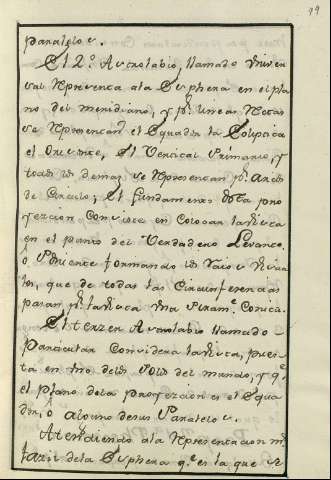 19
paralelos.
El 2º Astrolabio, llamado Univer
sal representa ala Esphera en el pla
no del meridiano, y pr. lineas Rectas
se representan el Equador, la Ecliptica
el Orizonte, El Vertical Primario, y
todos los demas se representan pr. Arcos
de Circulo; El fundamento desta pro
yeccion Consiste en Colocar la Vista
en el punto del Verdadero Levante,
ò Poniente formando los Raios Visua
les, que de todas las Circunferencias
pasan pr. la Vista una Piram.e Conica.
El terzer Astrolabio llamado
Particular Considera la Vista, pues
ta en Uno delos Polos del mundo, y qe.
el Plano dela proyeccion es el Equa
dor, ò alguno desus Paralelos.
Atendiendo ala representacion
dela Esphera qe. es la que se